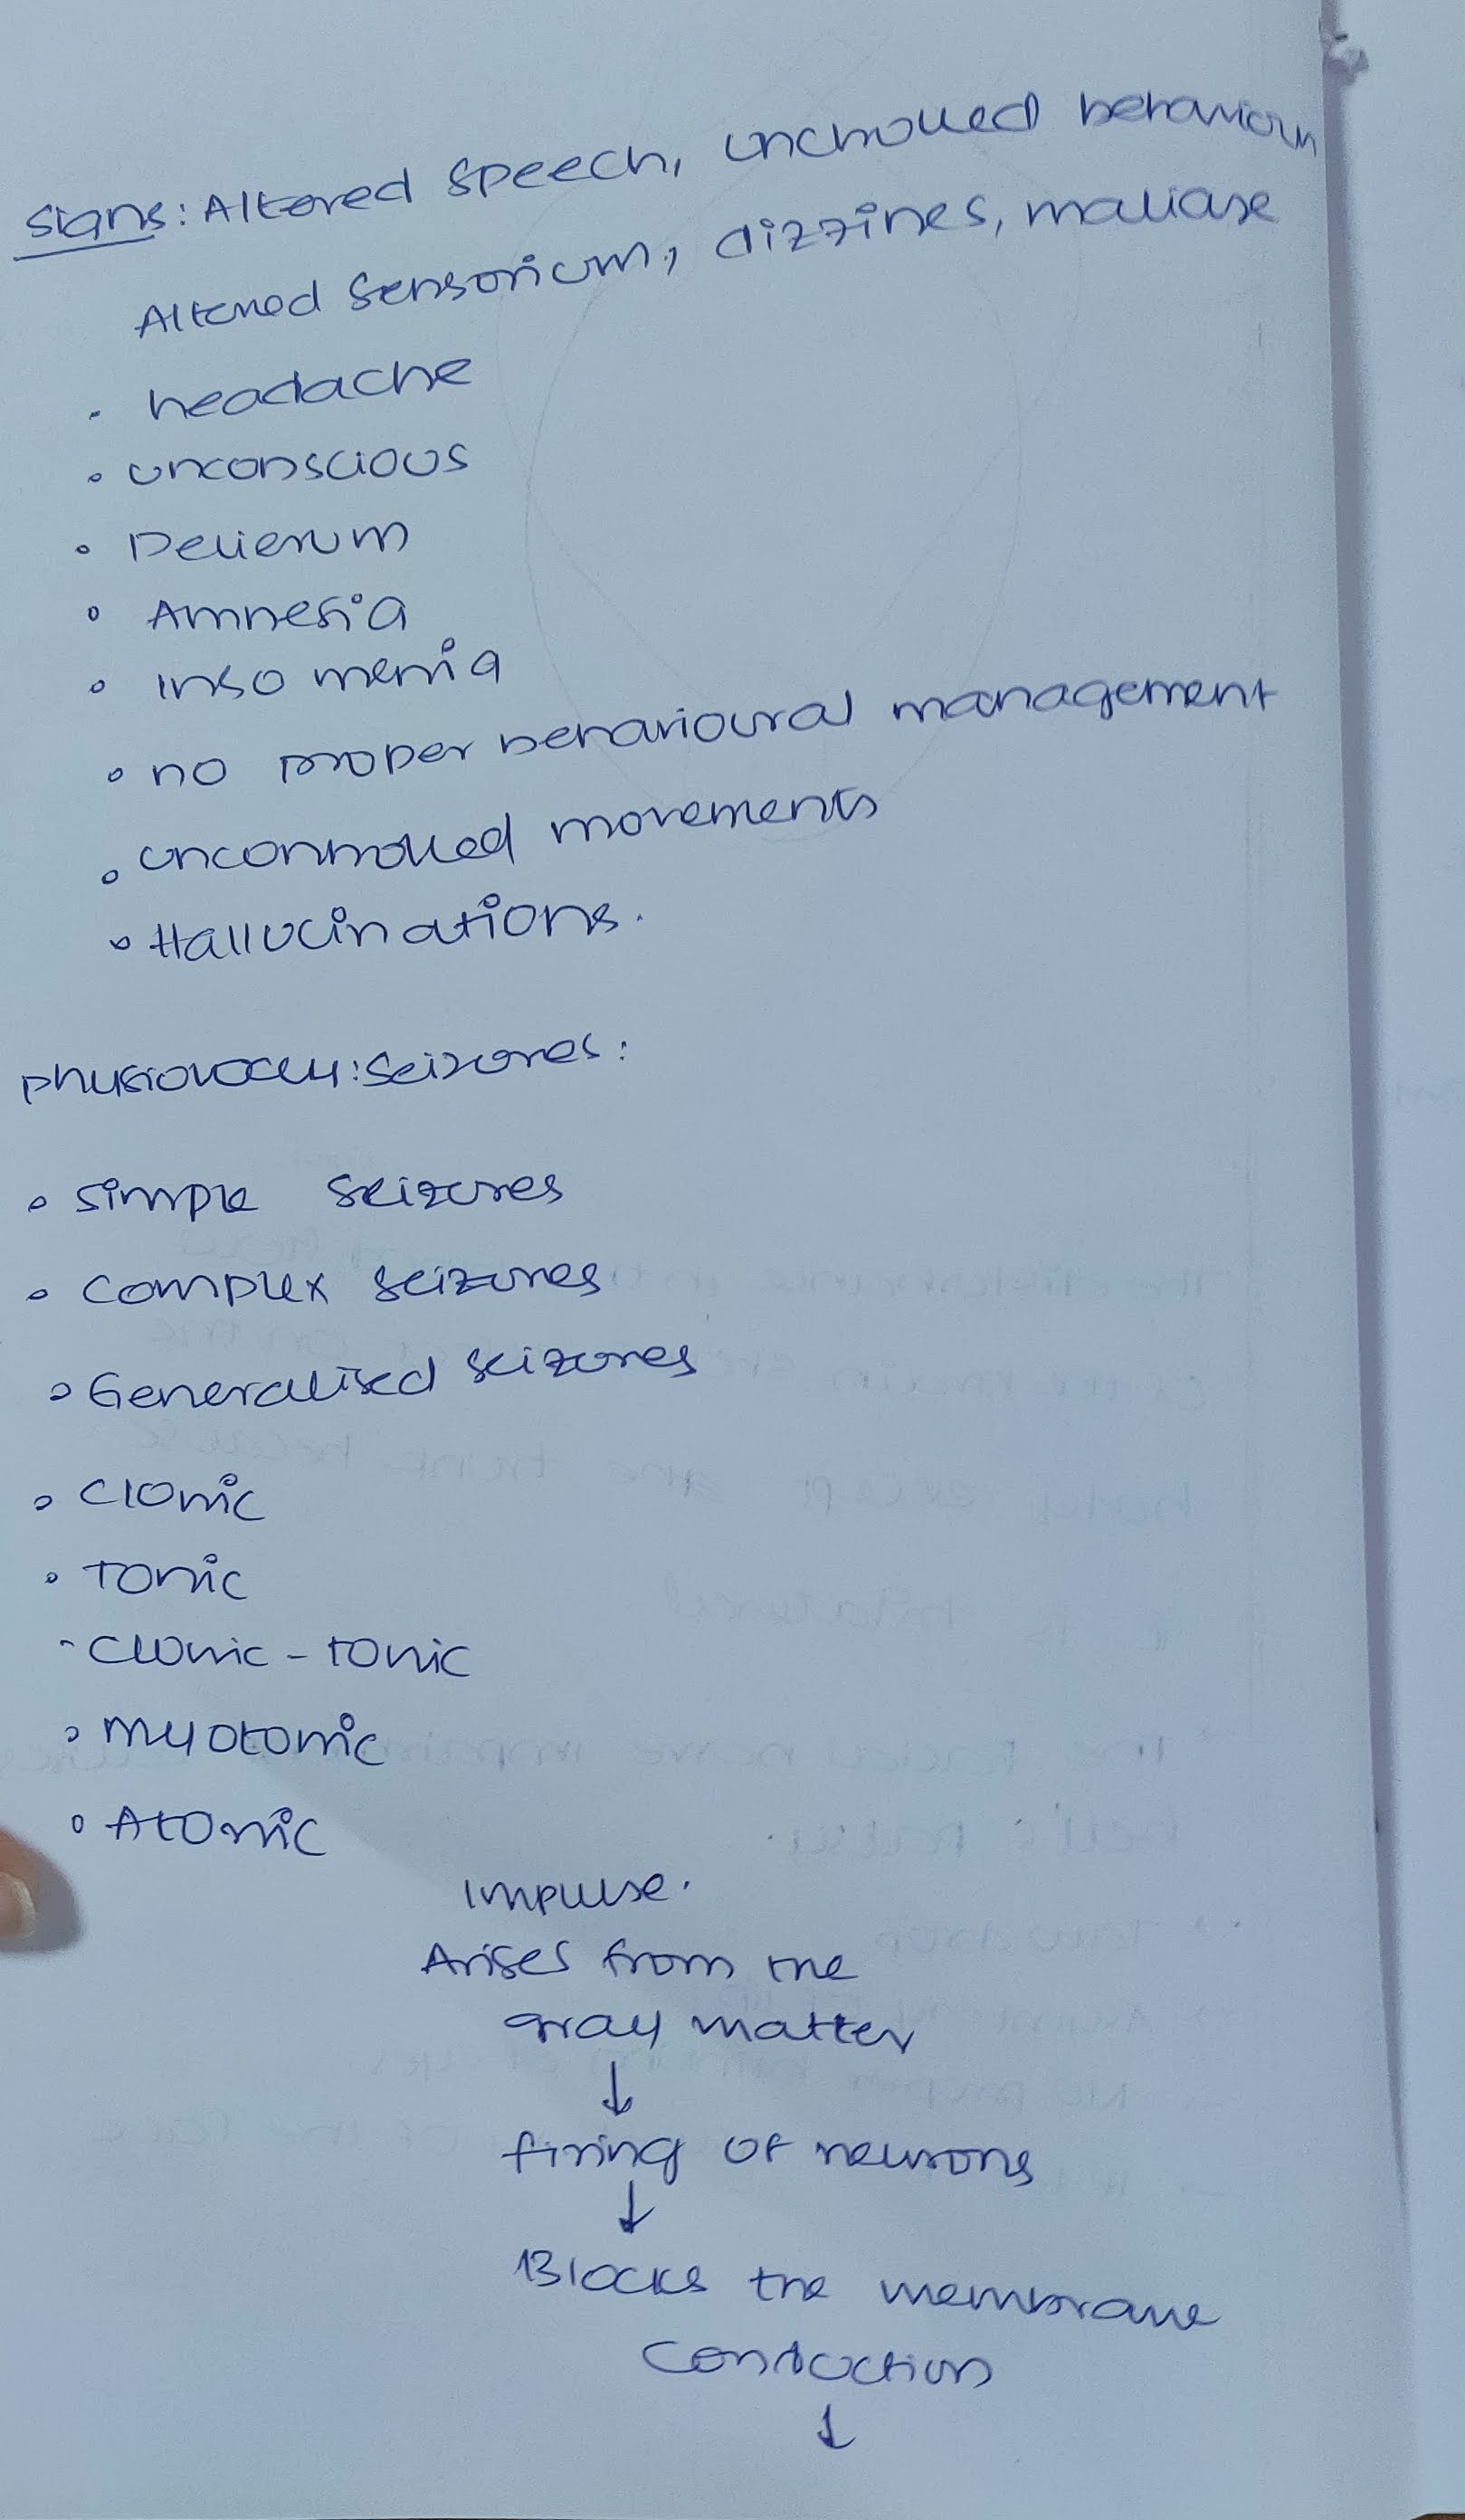 Signs: Altered speech, unchrolled behaviour
Altered sensorium, dizzines, maliase
• headache
• unconscious
• Delierum
• Amnesia
• Insomenia
• no proper behavioural management
• uncontrolled movements
• Hallucinations.
seizures:
• simple seizures
• complex seizures
• Generalised seizures
• Clonic
• Tonic
- Clonic - tonic
• Myotonic
• Atonic
Impulse.
Arises from the
gray matter
↓
firing of neurons
↓
Blocks the membrane
conduction
↓